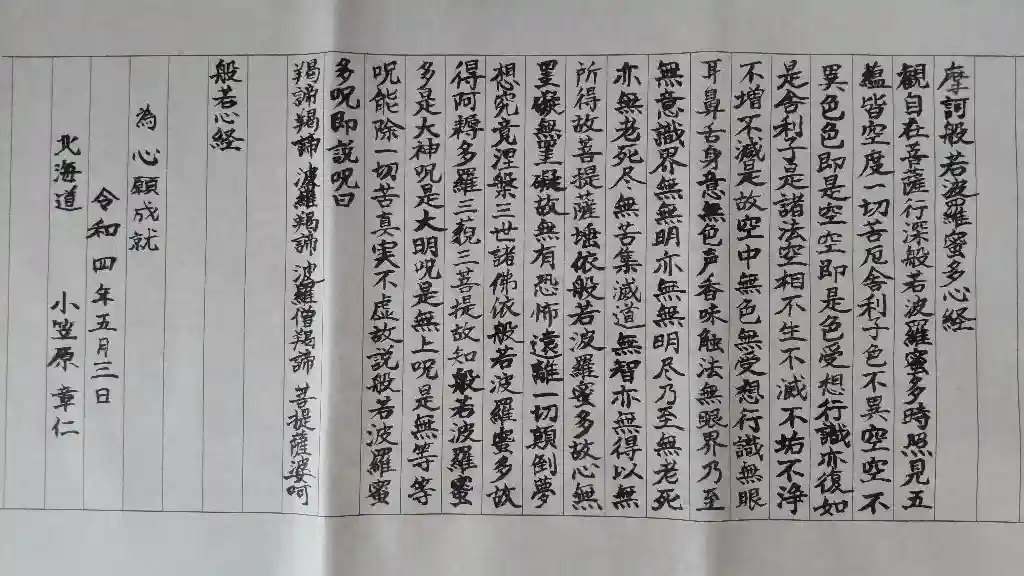 摩訶般若波羅蜜多心経
観自在菩薩行深般若波羅蜜多時照見五
蘊皆空度一切苦厄舎利子色不異空空不
異色色即是空空即是色受想行識亦復如
是舎利子是諸法空相不生不滅不垢不浄
不増不減是故空中無色無受想行識無眼
耳鼻舌身意無色声香味触法無眼界乃至
無意識界無無明亦無無明尽乃至無老死
亦無老死尽無苦集滅道無智亦無得以無
所得故菩提薩埵依般若波羅蜜多故心無
罣礙無罣礙故無有恐怖遠離一切顛倒夢
想究竟涅槃三世諸佛依般若波羅蜜多故
得阿耨多羅三藐三菩提故知般若波羅蜜
多是大神呪是大明呪是無上呪是無等等
呪能除一切苦真実不虚故説般若波羅蜜
多呪即説呪曰
羯諦羯諦 波羅羯諦 波羅僧羯諦 菩提薩婆呵
般若心経
為心願成就
令和四年五月三日
北海道 小笠原章仁